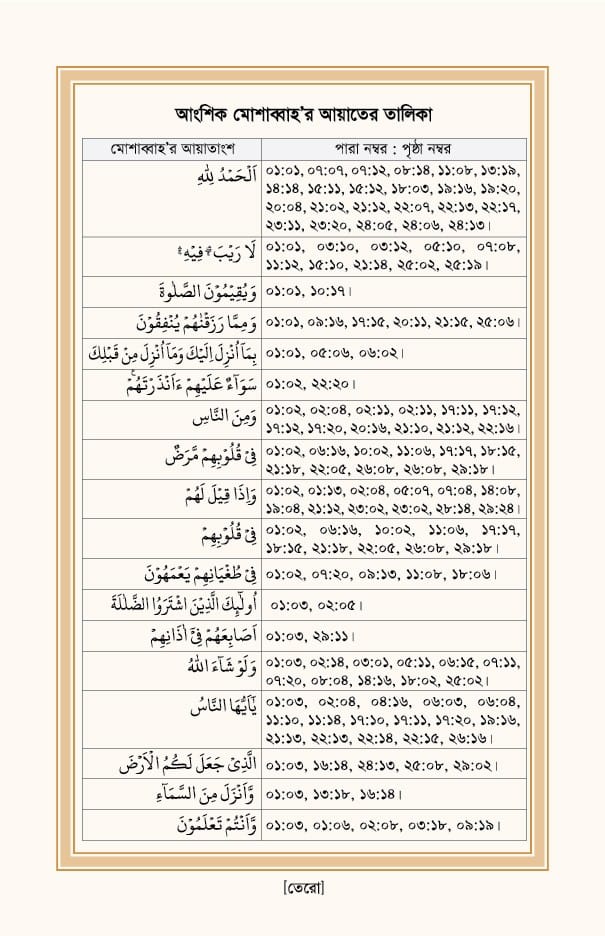 আংশিক মোশাব্বাহ'র আয়াতের তালিকা
মোশাব্বাহ'র আয়াতাংশ পারা নম্বর : পৃষ্ঠা নম্বর
اَلْحَمْدُ لِلّٰهِ ০১:০১, ০৭:০৭, ০৭:১২, ০৮:১৪, ১১:০৮, ১৩:১৯,
১৪:১৪, ১৫:১১, ১৫:১২, ১৮:০৩, ১৯:১৬, ১৯:২০,
২০:০৪, ২১:০২, ২১:১২, ২২:০৭, ২২:১৩, ২২:১৭,
২৩:১১, ২৩:২০, ২৪:০৫, ২৪:০৬, ২৪:১৩।
لَا رَيْبَ ۛۚ فِيْهِ ۛۚ ০১:০১, ০৩:১০, ০৩:১২, ০৫:১০, ০৭:০৮,
১১:১২, ১৫:১০, ২১:১৪, ২৫:০২, ২৫:১৯।
وَيُقِيْمُوْنَ الصَّلٰوةَ ০১:০১, ১০:১৭।
وَمِمَّا رَزَقْنٰهُمْ يُنْفِقُوْنَ ০১:০১, ০৯:১৬, ১৭:১৫, ২০:১১, ২১:১৫, ২৫:০৬।
بِمَاۤ اُنْزِلَ اِلَيْكَ وَمَاۤ اُنْزِلَ مِنْ قَبْلِكَ ০১:০১, ০৫:০৬, ০৬:০২।
سَوَآءٌ عَلَيْهِمْ ءَاَنْذَرْتَهُمْ ০১:০২, ২২:২০।
وَمِنَ النَّاسِ ০১:০২, ০২:০৪, ০২:১১, ০২:১১, ১৭:১১, ১৭:১২,
১৭:১২, ১৭:২০, ২০:১৬, ২১:১০, ২১:১২, ২২:১৬।
فِيْ قُلُوْبِهِمْ مَّرَضٌ ০১:০২, ০৬:১৬, ১০:০২, ১১:০৬, ১৭:১৭, ১৮:১৫,
২১:১৮, ২২:০৫, ২৬:০৮, ২৬:০৮, ২৯:১৮।
وَاِذَا قِيْلَ لَهُمْ ০১:০২, ০১:১৩, ০২:০৪, ০৫:০৭, ০৭:০৪, ১৪:০৮,
১৯:০৪, ২১:১২, ২৩:০২, ২৩:০২, ২৮:১৪, ২৯:২৪।
فِيْ قُلُوْبِهِمْ ০১:০২, ০৬:১৬, ১০:০২, ১১:০৬, ১৭:১৭,
১৮:১৫, ২১:১৮, ২২:০৫, ২৬:০৮, ২৯:১৮।
فِيْ طُغْيَانِهِمْ يَعْمَهُوْنَ ০১:০২, ০৭:২০, ০৯:১৩, ১১:০৮, ১৮:০৬।
اُولٰٓئِكَ الَّذِيْنَ اشْتَرَوُا الضَّلٰلَةَ ০১:০৩, ০২:০৫।
اَصَابِعَهُمْ فِيْۤ اٰذَانِهِمْ ০১:০৩, ২৯:১১।
وَلَوْ شَآءَ اللّٰهُ ০১:০৩, ০২:১৪, ০৩:০১, ০৫:১১, ০৬:১৫, ০৭:১১,
০৭:২০, ০৮:০৪, ১৪:১৬, ১৮:০২, ২৫:০২।
يٰۤاَيُّهَا النَّاسُ ০১:০৩, ০২:০৪, ০৪:১৬, ০৬:০৩, ০৬:০৪,
১১:১০, ১১:১৪, ১৭:১০, ১৭:১১, ১৭:২০, ১৯:১৬,
২১:১৩, ২২:১৩, ২২:১৪, ২২:১৫, ২৬:১৬।
الَّذِيْ جَعَلَ لَكُمُ الْاَرْضَ ০১:০৩, ১৬:১৪, ২৪:১৩, ২৫:০৮, ২৯:০২।
وَّاَنْزَلَ مِنَ السَّمَآءِ ০১:০৩, ১৩:১৮, ১৬:১৪।
وَّاَنْتُمْ تَعْلَمُوْنَ ০১:০৩, ০১:০৬, ০২:০৮, ০৩:১৮, ০৯:১৯।
[তেরো]